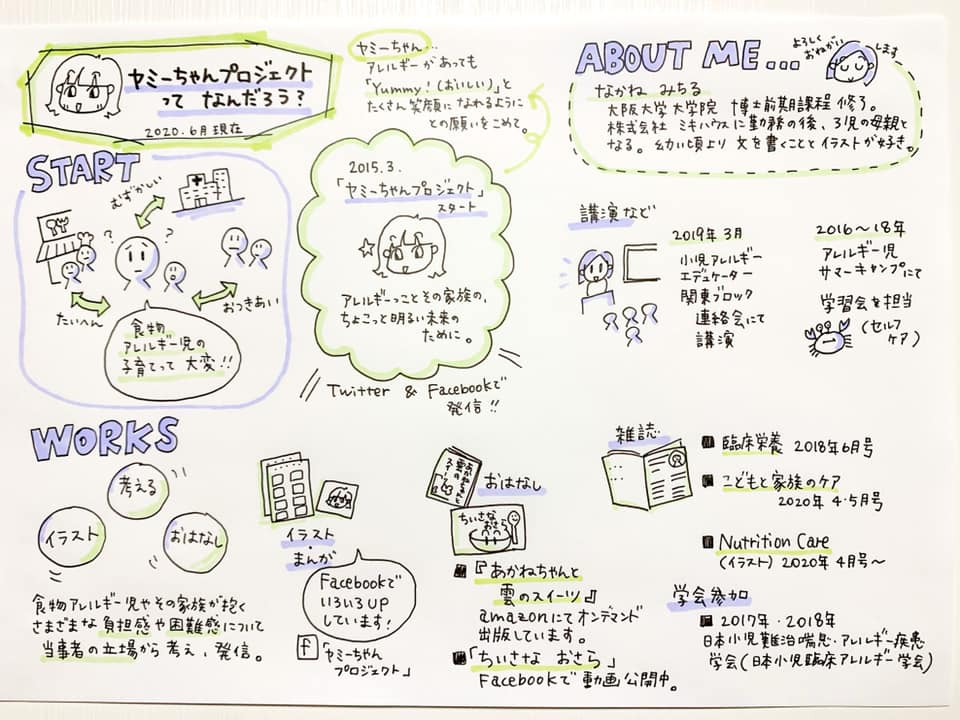 ヤミーちゃんプロジェクト
って なんだろう？
2020.6月現在
ヤミーちゃん...
アレルギーがあっても
「Yummy!(おいしい)」と
たくさん笑顔になれるように
との願いをこめて。
ABOUT ME...
よろしく
おねがい
します
なかね みちる
大阪大学大学院 博士前期課程 修了。
株式会社 ミキハウスに勤務の後、3児の母親と
なる。幼い頃より 文を書くことと イラストが好き。
START
むずかしい
?
?
たいへん
おつきあい
食物
アレルギー児の
子育てって 大変!!
2015.3.
「ヤミーちゃんプロジェクト」
スタート
アレルギーっことその家族の、
ちょこっと明るい未来の
ために。
Twitter & Facebookで
発信!!
講演など
2019年3月
小児アレルギー
エデュケーター
関東ブロック
連絡会にて
講演
2016〜18年
アレルギー児
サマーキャンプにて
学習会を担当
(セルフ
ケア)
WORKS
考える
イラスト
おはなし
食物アレルギー児やその家族が抱く
さまざまな 負担感や困難感について
当事者の立場から 考え、発信。
イラスト
・
まんが
Facebookで
いろいろUP
しています!
f
「ヤミーちゃん
プロジェクト」
あかねちゃんと
雲の
スイーツ
おはなし
ちいさな
おさら
『あかねちゃんと
雲のスイーツ』
amazonにてオンデマンド
出版しています。
「ちいさな おさら」
Facebookで 動画公開中。
雑誌
臨床栄養 2018年6月号
こどもと家族のケア
2020年 4・5月号
Nutrition Care
(イラスト) 2020年 4月号〜
学会参加
2017年・2018年
日本小児難治喘息・アレルギー疾患
学会(日本小児臨床アレルギー学会)